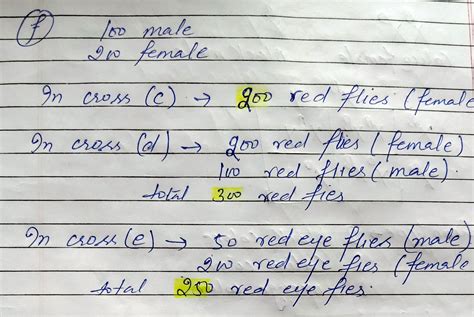 (f) 100 male
200 female
In cross (c) → 200 red flies (female
In cross (d) → 200 red flies (female)
100 red flies (male).
total 300 red fies
In cross (e) → 50 red eye flies (male)
200 red eye fies (female
total 250 red eye fies.